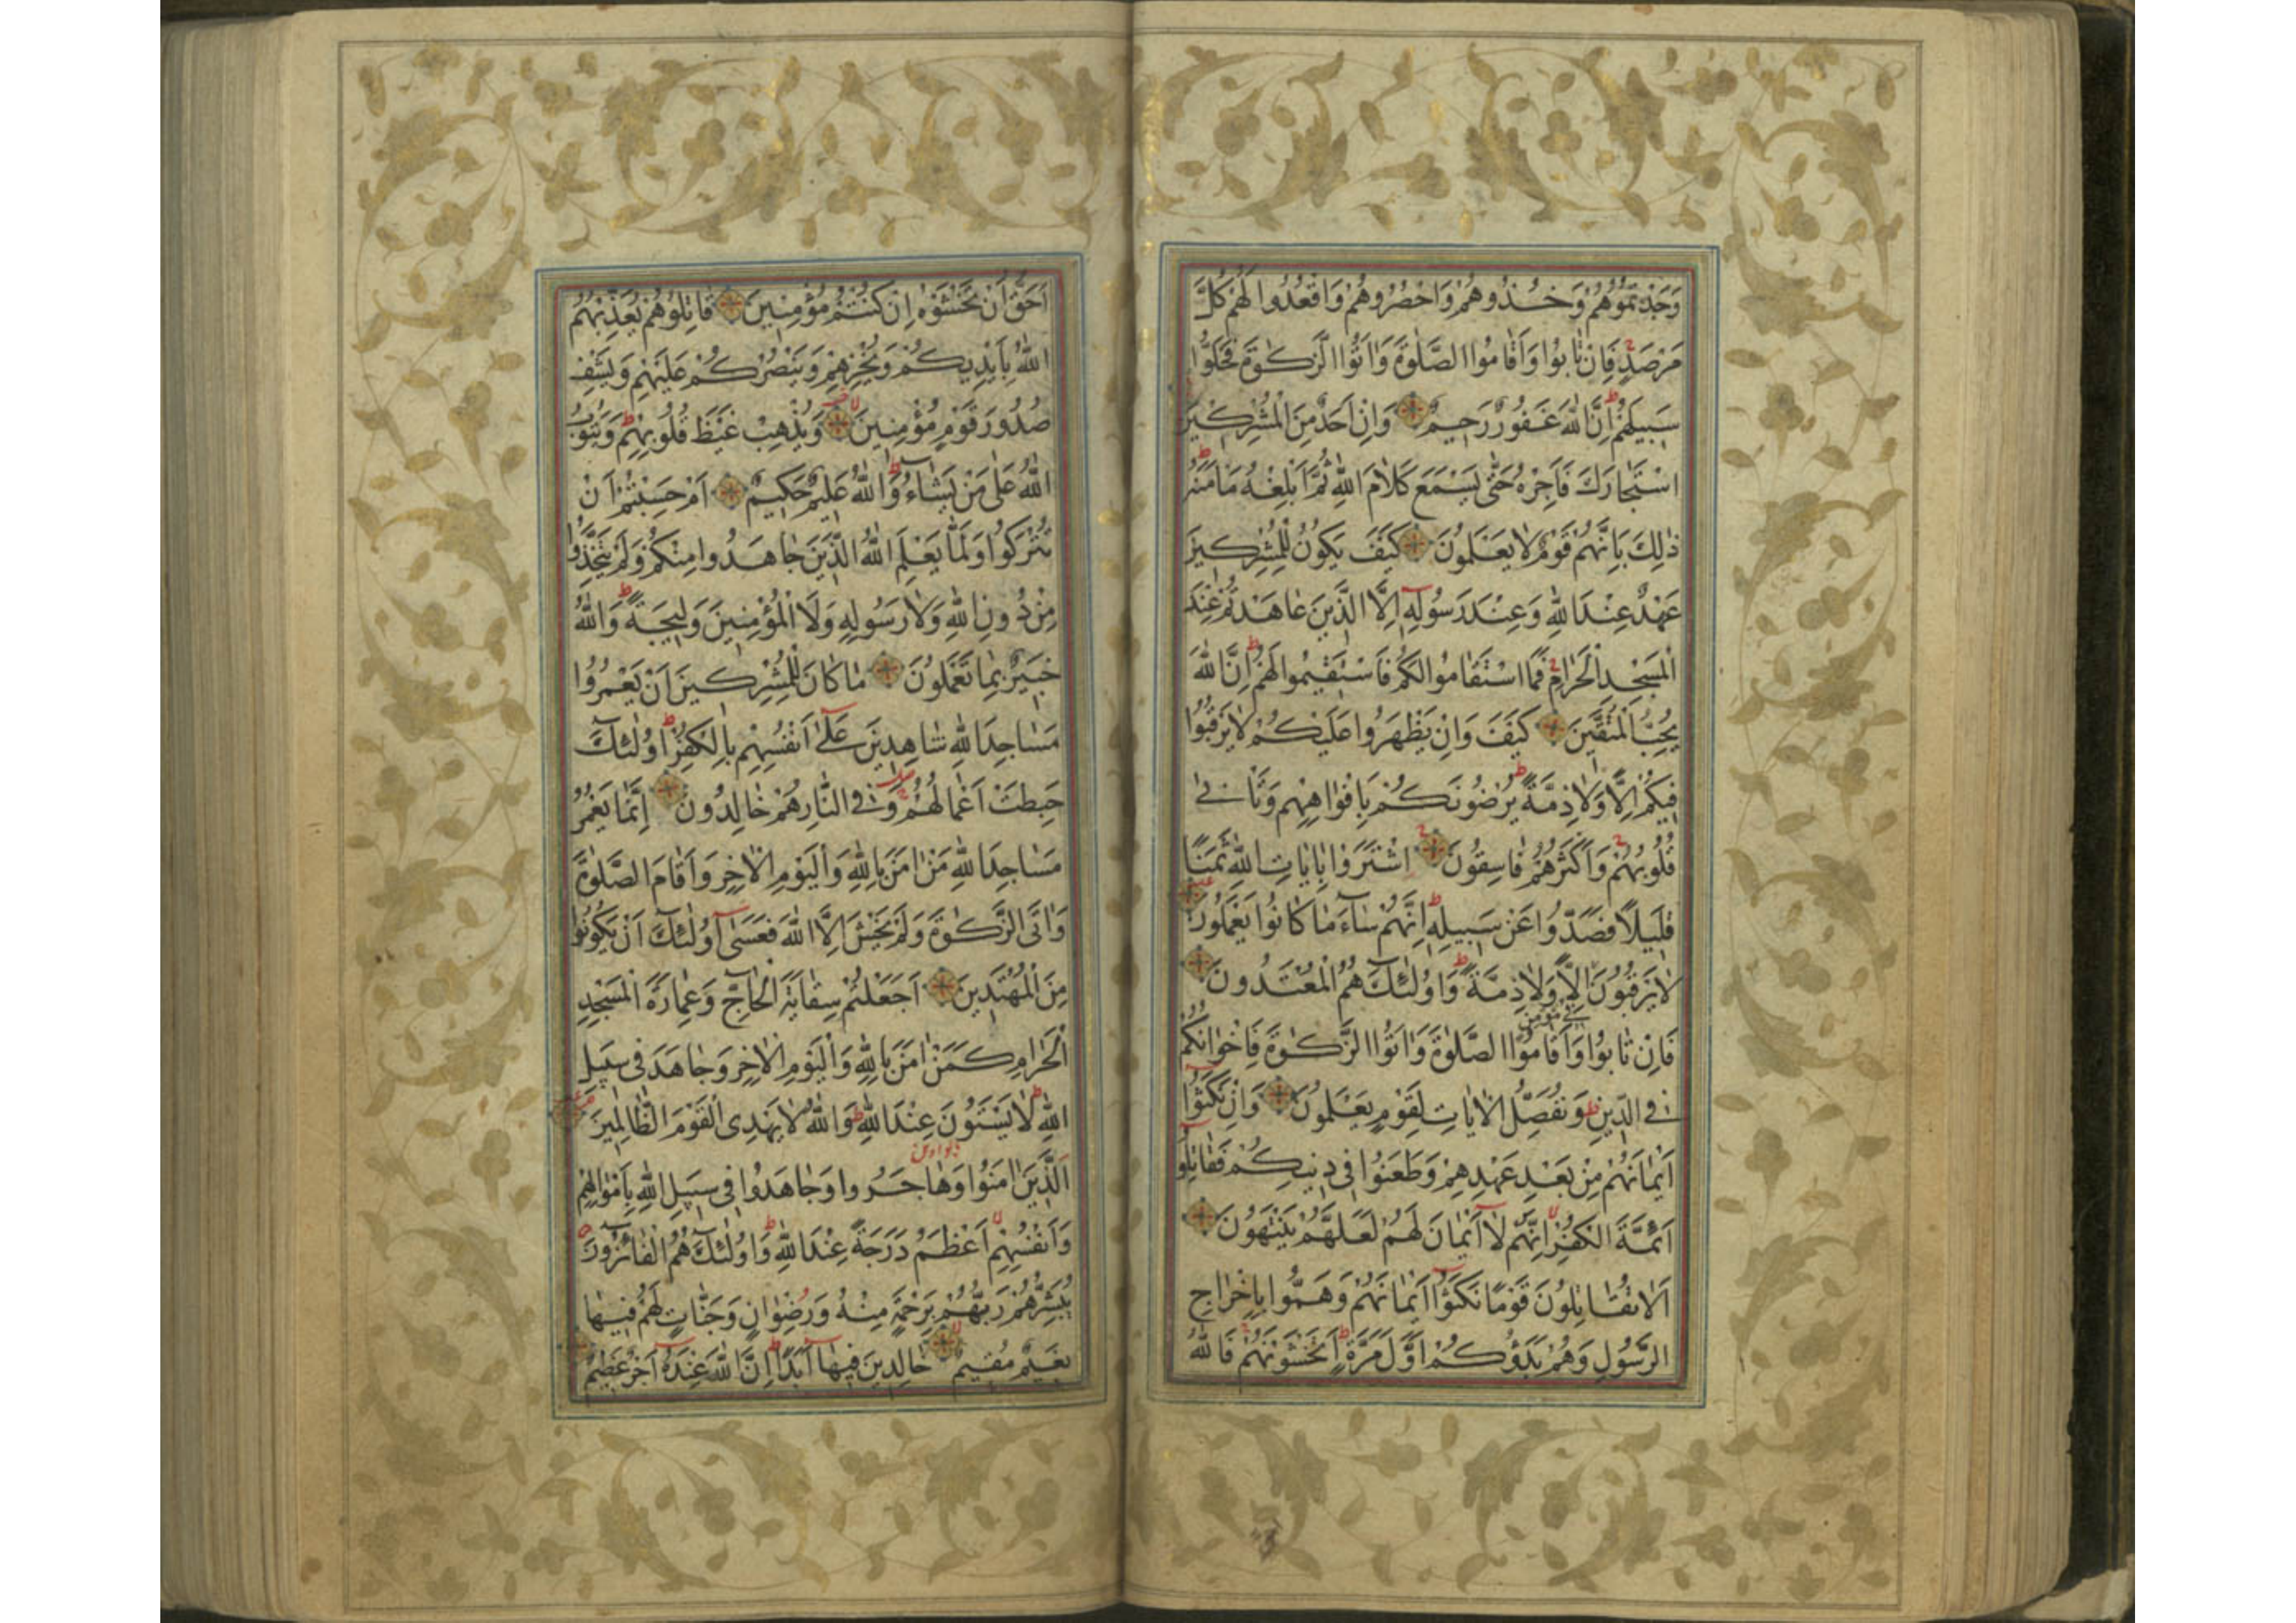 وَجَدْتُمُوهُمْ وَخُذُوهُمْ وَاحْصُرُوهُمْ وَاقْعُدُوا لَهُمْ كُلَّ
مَرْصَدٍ فَاِنْ تَابُوا وَاَقَامُوا الصَّلٰوةَ وَاٰتَوُا الزَّكٰوةَ فَخَلُّوا
سَبِيلَهُمْ اِنَّ اللّٰهَ غَفُورٌ رَحِيمٌ وَاِنْ اَحَدٌ مِنَ الْمُشْرِكِينَ
اسْتَجَارَكَ فَاَجِرْهُ حَتّٰى يَسْمَعَ كَلَامَ اللّٰهِ ثُمَّ اَبْلِغْهُ مَاْمَنَهُ
ذٰلِكَ بِاَنَّهُمْ قَوْمٌ لَا يَعْلَمُونَ كَيْفَ يَكُونُ لِلْمُشْرِكِينَ
عَهْدٌ عِنْدَ اللّٰهِ وَعِنْدَ رَسُولِهِ اِلَّا الَّذِينَ عَاهَدْتُمْ عِنْدَ
الْمَسْجِدِ الْحَرَامِ فَمَا اسْتَقَامُوا لَكُمْ فَاسْتَقِيمُوا لَهُمْ اِنَّ اللّٰهَ
يُحِبُّ الْمُتَّقِينَ كَيْفَ وَاِنْ يَظْهَرُوا عَلَيْكُمْ لَا يَرْقُبُوا
فِيكُمْ اِلًّا وَلَا ذِمَّةً يُرْضُونَكُمْ بِاَفْوَاهِهِمْ وَتَاْبٰى
قُلُوبُهُمْ وَاَكْثَرُهُمْ فَاسِقُونَ اِشْتَرَوْا بِاٰيَاتِ اللّٰهِ ثَمَنًا
قَلِيلًا فَصَدُّوا عَنْ سَبِيلِهِ اِنَّهُمْ سَاۤءَ مَا كَانُوا يَعْمَلُونَ
لَا يَرْقُبُونَ اِلًّا وَلَا ذِمَّةً وَاُولٰۤئِكَ هُمُ الْمُعْتَدُونَ
فَاِنْ تَابُوا وَاَقَامُوا الصَّلٰوةَ وَاٰتَوُا الزَّكٰوةَ فَاِخْوَانُكُمْ
فِي الدِّينِ وَنُفَصِّلُ الْاٰيَاتِ لِقَوْمٍ يَعْلَمُونَ وَاِنْ نَكَثُوا
اَيْمَانَهُمْ مِنْ بَعْدِ عَهْدِهِمْ وَطَعَنُوا فِي دِينِكُمْ فَقَاتِلُوا
اَئِمَّةَ الْكُفْرِ اِنَّهُمْ لَا اَيْمَانَ لَهُمْ لَعَلَّهُمْ يَنْتَهُونَ
اَلَا تُقَاتِلُونَ قَوْمًا نَكَثُوا اَيْمَانَهُمْ وَهَمُّوا بِاِخْرَاجِ
الرَّسُولِ وَهُمْ بَدَؤُكُمْ اَوَّلَ مَرَّةٍ اَتَخْشَوْنَهُمْ فَاللّٰهُ
اَحَقُّ اَنْ تَخْشَوْهُ اِنْ كُنْتُمْ مُؤْمِنِينَ قَاتِلُوهُمْ يُعَذِّبْهُمُ
اللّٰهُ بِاَيْدِيكُمْ وَيُخْزِهِمْ وَيَنْصُرْكُمْ عَلَيْهِمْ وَيَشْفِ
صُدُورَ قَوْمٍ مُؤْمِنِينَ وَيُذْهِبْ غَيْظَ قُلُوبِهِمْ وَيَتُوبُ
اللّٰهُ عَلٰى مَنْ يَشَاۤءُ وَاللّٰهُ عَلِيمٌ حَكِيمٌ اَمْ حَسِبْتُمْ اَنْ
تُتْرَكُوا وَلَمَّا يَعْلَمِ اللّٰهُ الَّذِينَ جَاهَدُوا مِنْكُمْ وَلَمْ يَتَّخِذُوا
مِنْ دُونِ اللّٰهِ وَلَا رَسُولِهِ وَلَا الْمُؤْمِنِينَ وَلِيجَةً وَاللّٰهُ
خَبِيرٌ بِمَا تَعْمَلُونَ مَا كَانَ لِلْمُشْرِكِينَ اَنْ يَعْمُرُوا
مَسَاجِدَ اللّٰهِ شَاهِدِينَ عَلٰى اَنْفُسِهِمْ بِالْكُفْرِ اُولٰۤئِكَ
حَبِطَتْ اَعْمَالُهُمْ وَفِي النَّارِ هُمْ خَالِدُونَ اِنَّمَا يَعْمُرُ
مَسَاجِدَ اللّٰهِ مَنْ اٰمَنَ بِاللّٰهِ وَالْيَوْمِ الْاٰخِرِ وَاَقَامَ الصَّلٰوةَ
وَاٰتَى الزَّكٰوةَ وَلَمْ يَخْشَ اِلَّا اللّٰهَ فَعَسٰى اُولٰۤئِكَ اَنْ يَكُونُوا
مِنَ الْمُهْتَدِينَ اَجَعَلْتُمْ سِقَايَةَ الْحَاۤجِّ وَعِمَارَةَ الْمَسْجِدِ
الْحَرَامِ كَمَنْ اٰمَنَ بِاللّٰهِ وَالْيَوْمِ الْاٰخِرِ وَجَاهَدَ فِي سَبِيلِ
اللّٰهِ لَا يَسْتَوُونَ عِنْدَ اللّٰهِ وَاللّٰهُ لَا يَهْدِي الْقَوْمَ الظَّالِمِينَ
اَلَّذِينَ اٰمَنُوا وَهَاجَرُوا وَجَاهَدُوا فِي سَبِيلِ اللّٰهِ بِاَمْوَالِهِمْ
وَاَنْفُسِهِمْ اَعْظَمُ دَرَجَةً عِنْدَ اللّٰهِ وَاُولٰۤئِكَ هُمُ الْفَاۤئِزُونَ
يُبَشِّرُهُمْ رَبُّهُمْ بِرَحْمَةٍ مِنْهُ وَرِضْوَانٍ وَجَنَّاتٍ لَهُمْ فِيهَا
نَعِيمٌ مُقِيمٌ خَالِدِينَ فِيهَا اَبَدًا اِنَّ اللّٰهَ عِنْدَهُ اَجْرٌ عَظِيمٌ